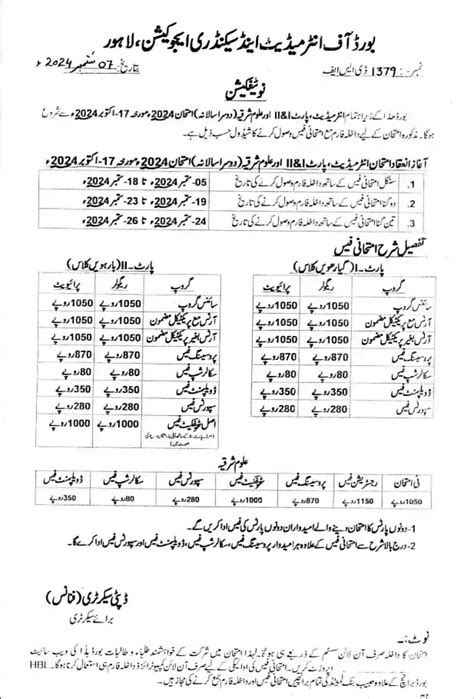 بورڈ آف انٹرمیڈیٹ اینڈ سیکنڈری ایجوکیشن، لاہور
نمبر: 1379 ڈی ایس ایف
تاریخ: 07 ستمبر 2024ء
نوٹیفکیشن
بورڈ ھذا کے زیر اہتمام انٹرمیڈیٹ، پارٹ I&II اور علوم شرقیہ (دوسرا سالانہ) امتحان 2024ء مورخہ 17-اکتوبر 2024ء سے شروع
ہوگا۔ مذکورہ امتحان کے لیے داخلہ فارم مع امتحانی فیس وصول کرنے کا شیڈول حسب ذیل ہے۔
آغاز انعقاد امتحان انٹرمیڈیٹ، پارٹ I&II اور علوم شرقیہ (دوسرا سالانہ) امتحان 2024ء مورخہ 17-اکتوبر 2024ء
1. سنگل امتحانی فیس کے ساتھ داخلہ فارم وصول کرنے کی تاریخ 05-ستمبر 2024ء تا 18-ستمبر 2024ء
2. دوگنا امتحانی فیس کے ساتھ داخلہ فارم وصول کرنے کی تاریخ 19-ستمبر 2024ء تا 23-ستمبر 2024ء
3. تین گنا امتحانی فیس کے ساتھ داخلہ فارم وصول کرنے کی تاریخ 24-ستمبر 2024ء تا 26-ستمبر 2024ء
تفصیل شرح امتحانی فیس
پارٹ-I (گیارھویں کلاس)
گروپ ریگولر پرائیویٹ
سائنس گروپ 1050روپے 1050روپے
آرٹس مع پریکٹیکل مضمون 1050روپے 1050روپے
آرٹس بغیر پریکٹیکل مضمون 1050روپے 1050روپے
پروسیسنگ فیس 870روپے 870روپے
سکالرشپ فیس 80روپے 80روپے
ڈویلپمنٹ فیس 350روپے 350روپے
سپورٹس فیس 280روپے 280روپے
پارٹ-II (بارھویں کلاس)
گروپ ریگولر پرائیویٹ
سائنس گروپ 1050روپے 1050روپے
آرٹس مع پریکٹیکل مضمون 1050روپے 1050روپے
آرٹس بغیر پریکٹیکل مضمون 1050روپے 1050روپے
پروسیسنگ فیس 870روپے 870روپے
سکالرشپ فیس 80روپے 80روپے
ڈویلپمنٹ فیس 350روپے 350روپے
سپورٹس فیس 280روپے 280روپے
اصل سرٹیفکیٹ فیس 1000روپے 1000روپے
علوم شرقیہ
فی امتحان رجسٹریشن فیس پروسیسنگ فیس سرٹیفکیٹ فیس سپورٹس فیس سکالرشپ فیس ڈویلپمنٹ فیس
1050روپے 1150روپے 870روپے 1000روپے 280روپے 80روپے 350روپے
1-دونوں پارٹس کا امتحان دینے والے امیدواران دونوں پارٹس کی فیس ادا کریں گے۔
2-درج بالا شرح سے امتحانی فیس کے علاوہ ہر امیدوار پروسیسنگ فیس، سکالرشپ فیس، ڈویلپمنٹ فیس اور سپورٹس فیس ادا کرے گا۔
ڈپٹی سیکرٹری (فنانس)
برائے سیکرٹری
نوٹ:۔
امتحان کا داخلہ صرف آن لائن سسٹم کے ذریعے ہی ہوگا۔ لہذا امتحان میں شرکت کے خواہشمند طلباء و طالبات بورڈ ہذا کی ویب سائیٹ
وزٹ کریں۔ امتحانی فیس کی ادائیگی کے لیے صرف آن لائن کمپیوٹرائزڈ داخلہ فارم ہی استعمال کرنا ہوگا۔ HBL
بورڈ برانچ کے علاوہ صوبہ بنک لمیٹڈ کی تمام برانچوں میں بھی فیس جمع کرنے کی مجاز ہیں۔